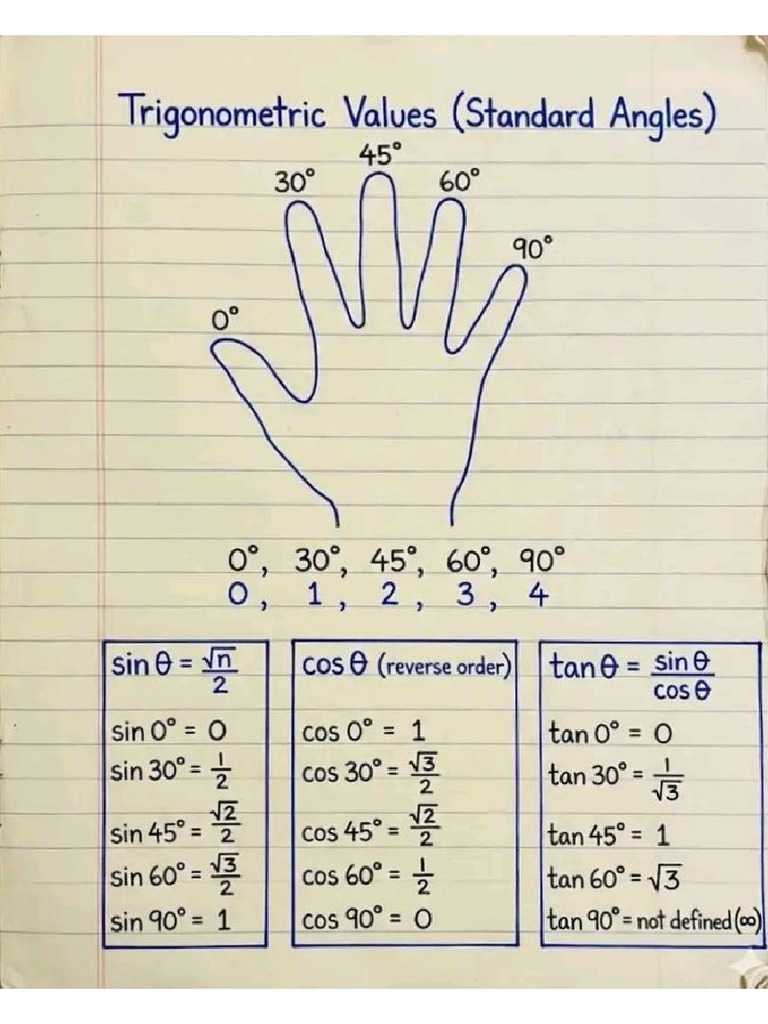 Trigonometric Values (Standard Angles)
45°
30°
60°
90°
0°
0°, 30°, 45°, 60°, 90°
0, 1, 2, 3, 4
sin θ = √n/2
sin 0° = 0
sin 30° = 1/2
sin 45° = √2/2
sin 60° = √3/2
sin 90° = 1
cos θ (reverse order)
cos 0° = 1
cos 30° = √3/2
cos 45° = √2/2
cos 60° = 1/2
cos 90° = 0
tan θ = sin θ/cos θ
tan 0° = 0
tan 30° = 1/√3
tan 45° = 1
tan 60° = √3
tan 90° = not defined (∞)